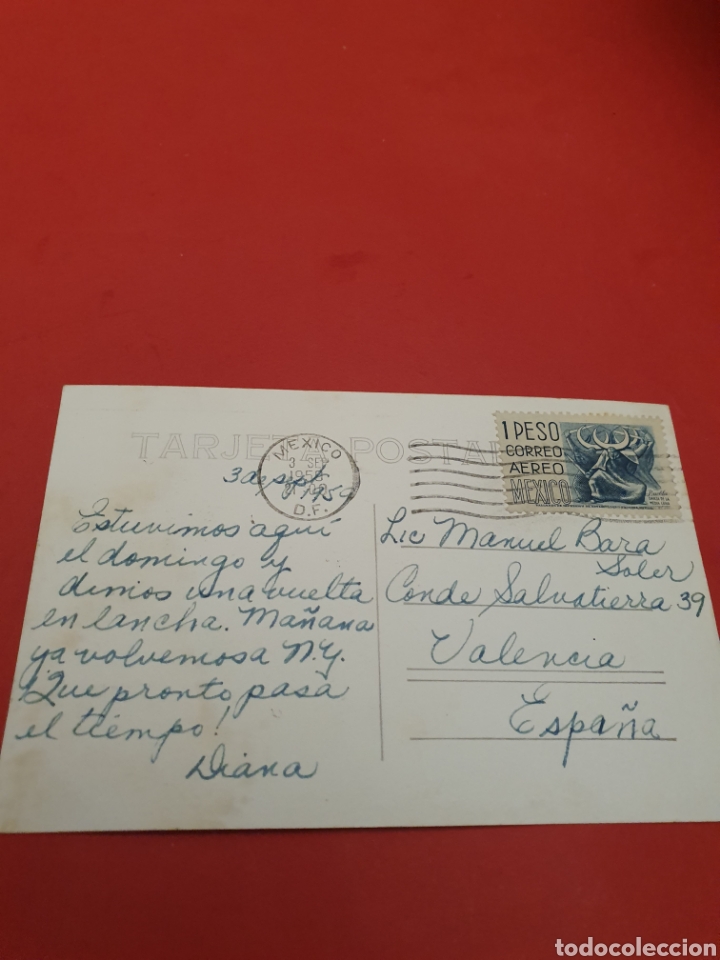 TARJETA POSTAL
MEXICO
3 SEP
195
D.F.
1 PESO
CORREO
AEREO
MEXICO
3 de sept.
1959
Estuvimos aquí
el domingo y
dimos una vuelta
en lancha. Mañana
ya volvemos a N.Y.
Que pronto pasa
el tiempo!
Diana
Lic Manuel Bara
Soler
Conde Salvatierra 39
Valencia
España
todocoleccion